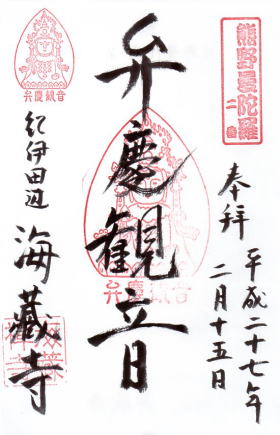 熊野曼陀羅
二番
奉拝
平成二十七年
二月十五日
弁慶観音
弁慶観音
弁慶観音
紀伊田辺
海蔵寺